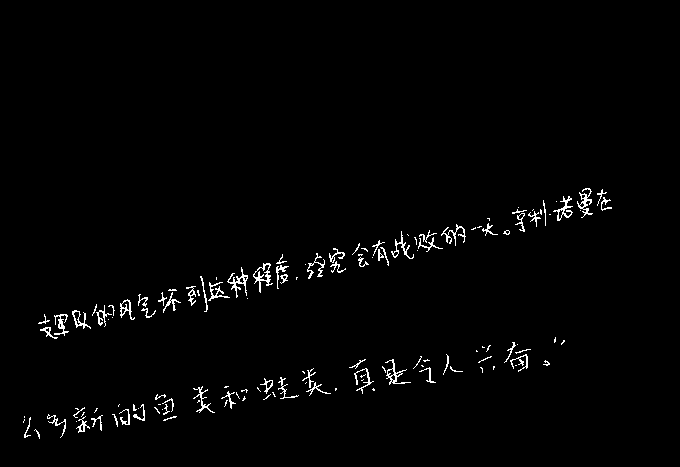 军队的风气坏到这种程度，终究会有战败的一天。亨利·诺曼在
么多新的鱼类和蛙类，真是令人兴奋。”